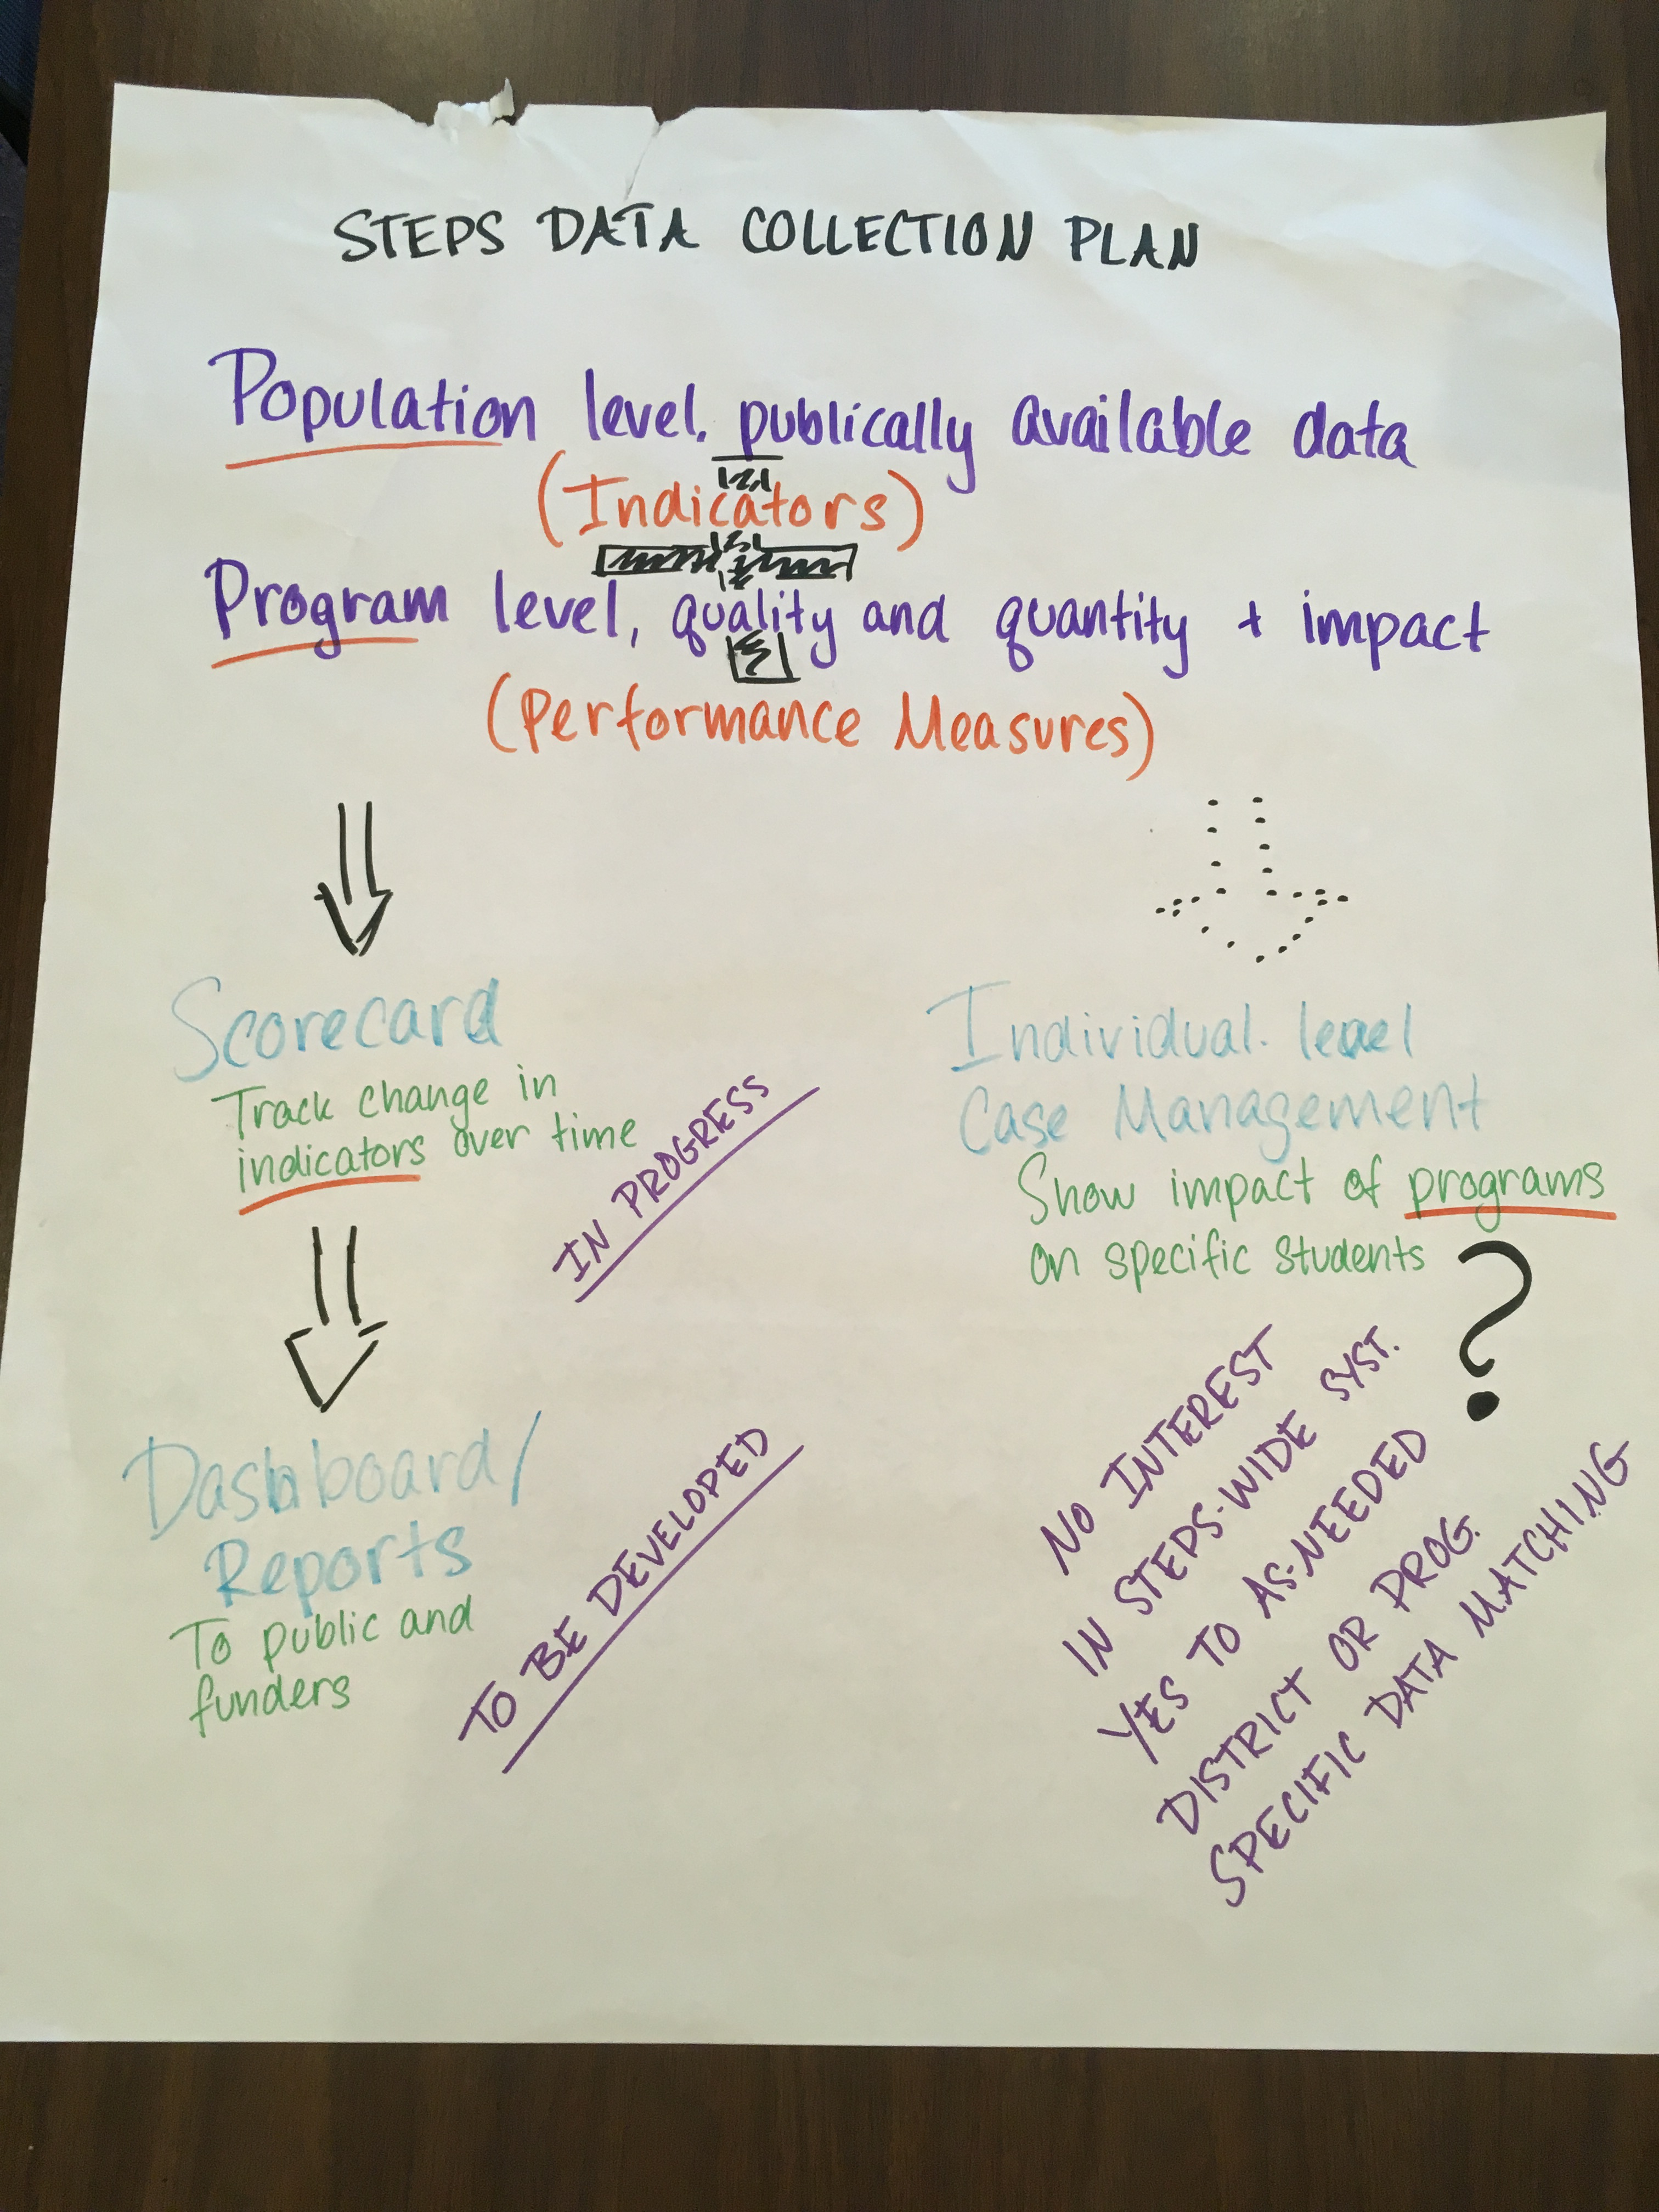 STEPS DATA COLLECTION PLAN
Population level, publically available data
(Indicators)
Program level, quality and quantity + impact
(Performance Measures)
Scorecard
Track change in
indicators over time
IN PROGRESS
Dashboard/
Reports
To public and
funders
TO BE DEVELOPED
Individual-level
Case Management
Show impact of programs
on specific students
?
NO INTEREST
IN STEPS-WIDE SYST.
YES TO AS-NEEDED
DISTRICT OR PROG.
SPECIFIC DATA MATCHING